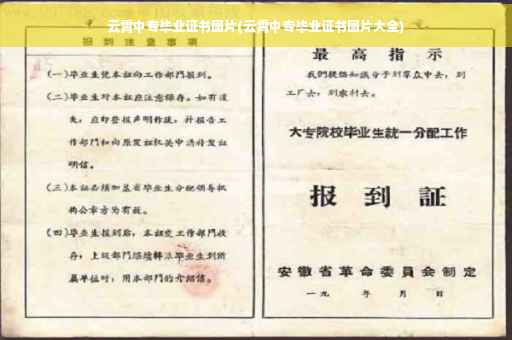 云霄中专毕业证书图片(云霄中专毕业证书图片大全)
报到注意事项
(一)毕业生凭本证向工作部门报到。
(二)毕业生对本证应注意保存。如有遗
失,应即登报声明作废,并报告工
作部门和向原发证机关申请补发证
明信。
(三)本证必须加盖省毕业生分配领导机
构公章方为有效。
(四)毕业生报到后,本证交工作部门收
存,上级部门继续转派毕业生到所
属单位时,用本部门的介绍信。
最高指示
我们提倡知识分子到群众中去,到
工厂去,到农村去。
大专院校毕业生統一分配工作
报到証
安徽省革命委員会制定
一九 年 月 日